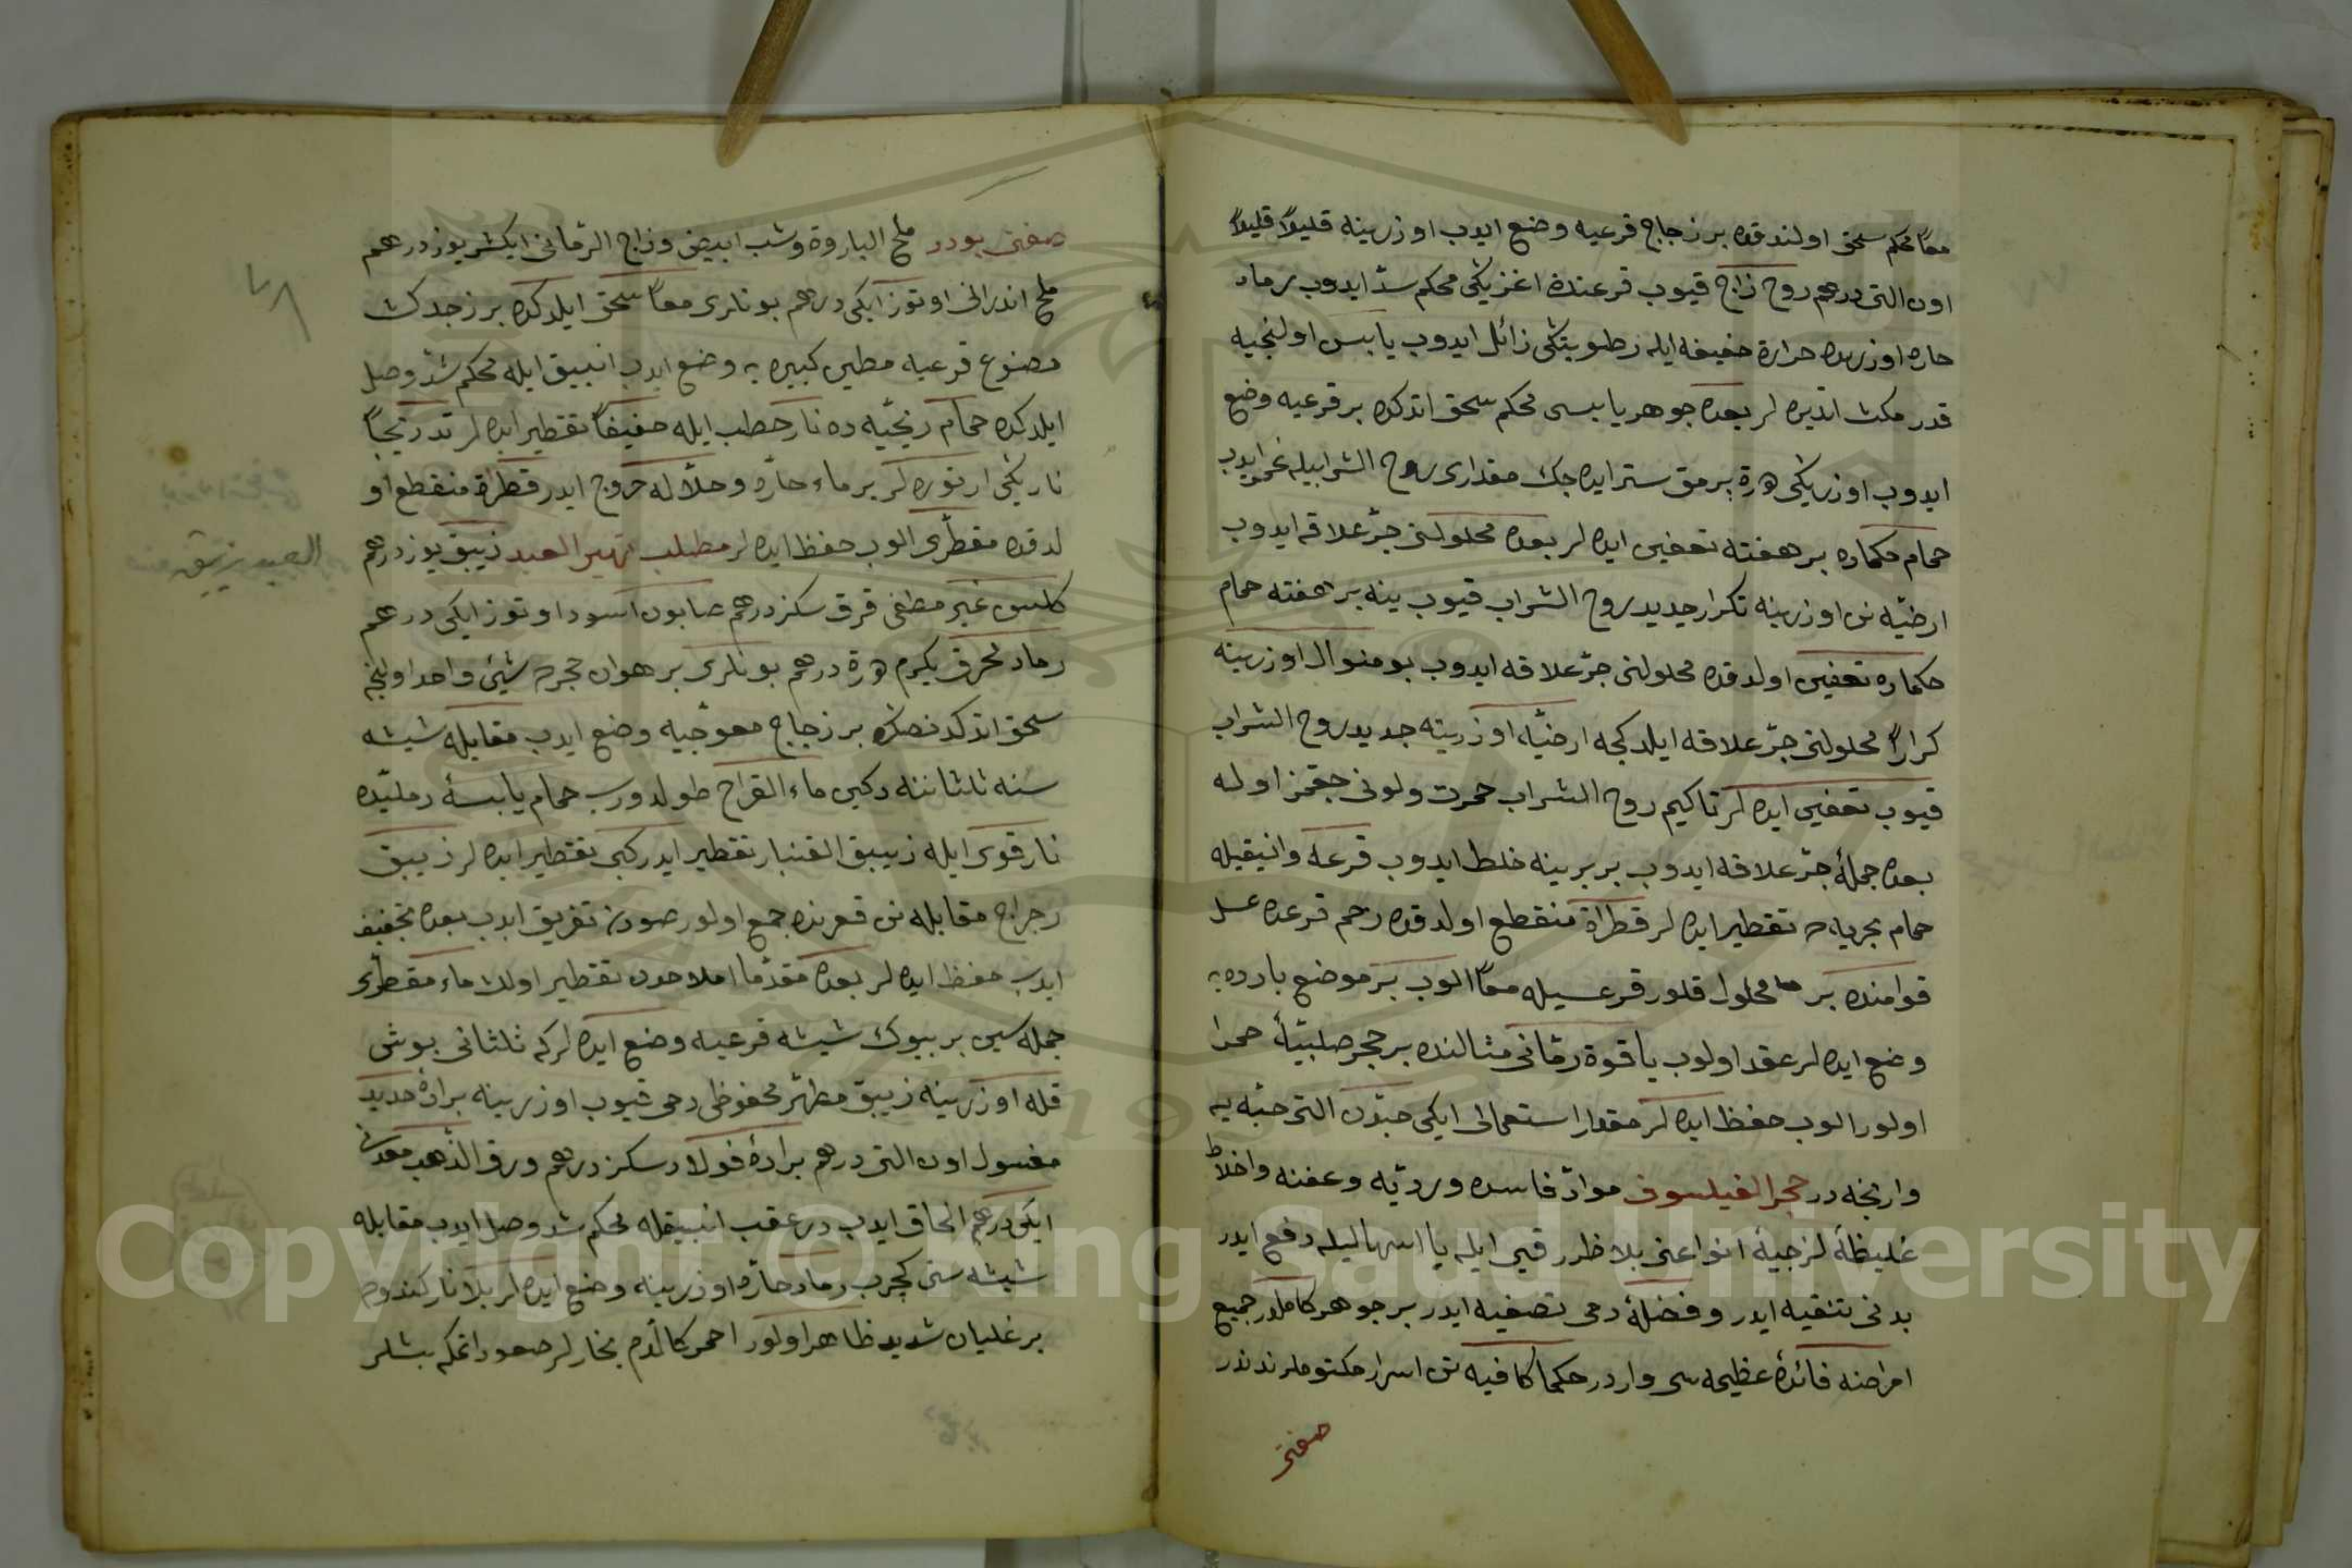 معًا محكم سحق اولندقده بر زجاج قرعيه وضع ايدوب اوزرينه قليلاً قليلاً
اون التى درهم روح زاج قيوب قرعنه‌ك اغزينكى محكم سدّ ايدوب رماد
حاره اوزرنده حرارة خفيفه ايله رطوبتنكى زائل ايدوب يابس اولنجيه
قدر مكث اتديره لر بعده جوهر يابسى محكم سحق اتدكده بر قرعيه وضع
ايدوب اوزرينكى درة برمق ستر ايده جك مقدارى روح الشرابيله غمر ايدوب
حمام حكماده بر هفته تعفين ايده لر بعده محلولنى جرّ علاقه ايدوب
ارضيّه نن اوزرينه تكرار جديد روح الشراب قيوب ينه بر هفته حمام
حكماده تعفين اولدقده محلولنى جرّ علاقه ايدوب بو منوال اوزرينه
كرارًا محلولنى جرّ علاقه ايلدكجه ارضيّه اوزرينه جديد روح الشراب
قيوب تعفين ايده لر تاكيم روح الشراب حمرت ولونى چقمز اوله
بعده جملهٔ جرّ علاقه ايدوب بر برينه خلط ايدوب قرعه وانبيقيله
حمام بحريه ده تقطير ايده لر قطراة منقطع اولدقده رحم قرعده عسل
قوامنده بر محلول قلور قرعسيله معًا الوب بر موضع بارده يه
وضع ايده لر عقد اولوب ياقوة رمّانى مثالنده بر حجر صلبيّهٔ حمرا
اولور الوب حفظ ايده لر مقدار استعمالى ايكى حبّه‌دن التى حبّه يه
وارنجه در حجر الفيلسوف موادّ فاسده ورديّه وعفنه واخلاط
غليظهٔ لزجيهٔ انواعنى بلا ظرر قيى ايله يا اسهاليله دفع ايدر
بدنى تنقيه ايدر وفضلهٔ دمى تصفيه ايدر بر جوهر كاملدر جميع
امراضنه فائدهٔ عظيمه سى واردر حكما كافيه نن اسرار مكتوملرندندر
صفتى
صفتى بودر ملح الباروة وشب ابيض وزاج الرّمانى ايكشر يوز درهم
ملح اندرانى اوتوز ايكى درهم بونلرى معًا سحق ايلدكده بر زجدك
مصنوع قرعيه مطين كبيره يه وضع ايدب انبيق ايله محكم شدّ وصل
ايلدكده حمام ريحيّه ده نار حطب ايله خفيفاً تقطير ايده لر تدريجاً
نارينكى ارتوره لر بر ماء حارّه وحلاّله خروج ايدر قطراة منقطع او
لدقده مقطّرى الوب حفظ ايده لر مطلب تهير العبد زيبق يوز درهم
كلس غير مطفى قرق سكز درهم صابون اسود اوتوز ايكى درهم
رماد محرق يكرم درة درهم بونلرى بر هوان حجرده شيئ واحد اولنجه
سحق اتدكدنصكره بر زجاج معوّجيه وضع ايدب مقابله شيشه
سنه ثلثاننه دكين ماء القراح طولدورب حمام يابسهٔ رمليّده
نار قوى ايله زيبق القنبار تقطير ايدر كبى تقطير ايده لر زيبق
رجراج مقابله نن قعرنده جمع اولور صودن تفريق ايدب بعده تجفيف
ايدب حفظ ايده لر بعده مقدّما املاحدن تقطير اولان ماء مقطّرى
جمله سين بر بيوك شيشه قرعيه وضع ايده لر كه ثلثانى بوش
قله اوزرينه زيبق مطهّر محفوظى دحى قيوب اوزرينه برادهٔ حديد
مغسول اون التى درهم برادهٔ فولاد سكز درهم ورق الذّهب معدن
ايكى درهم الحاق ايدب در عقب انبيقله محكم شد وصل ايدب مقابله
شيشه سنى كچرب رماد حارّه اوزرينه وضع ايده لر بلا نار كندوده
بر غليان شديد ظاهر اولور احمر كالدّم بخارلر صعود اتمكه بشلر